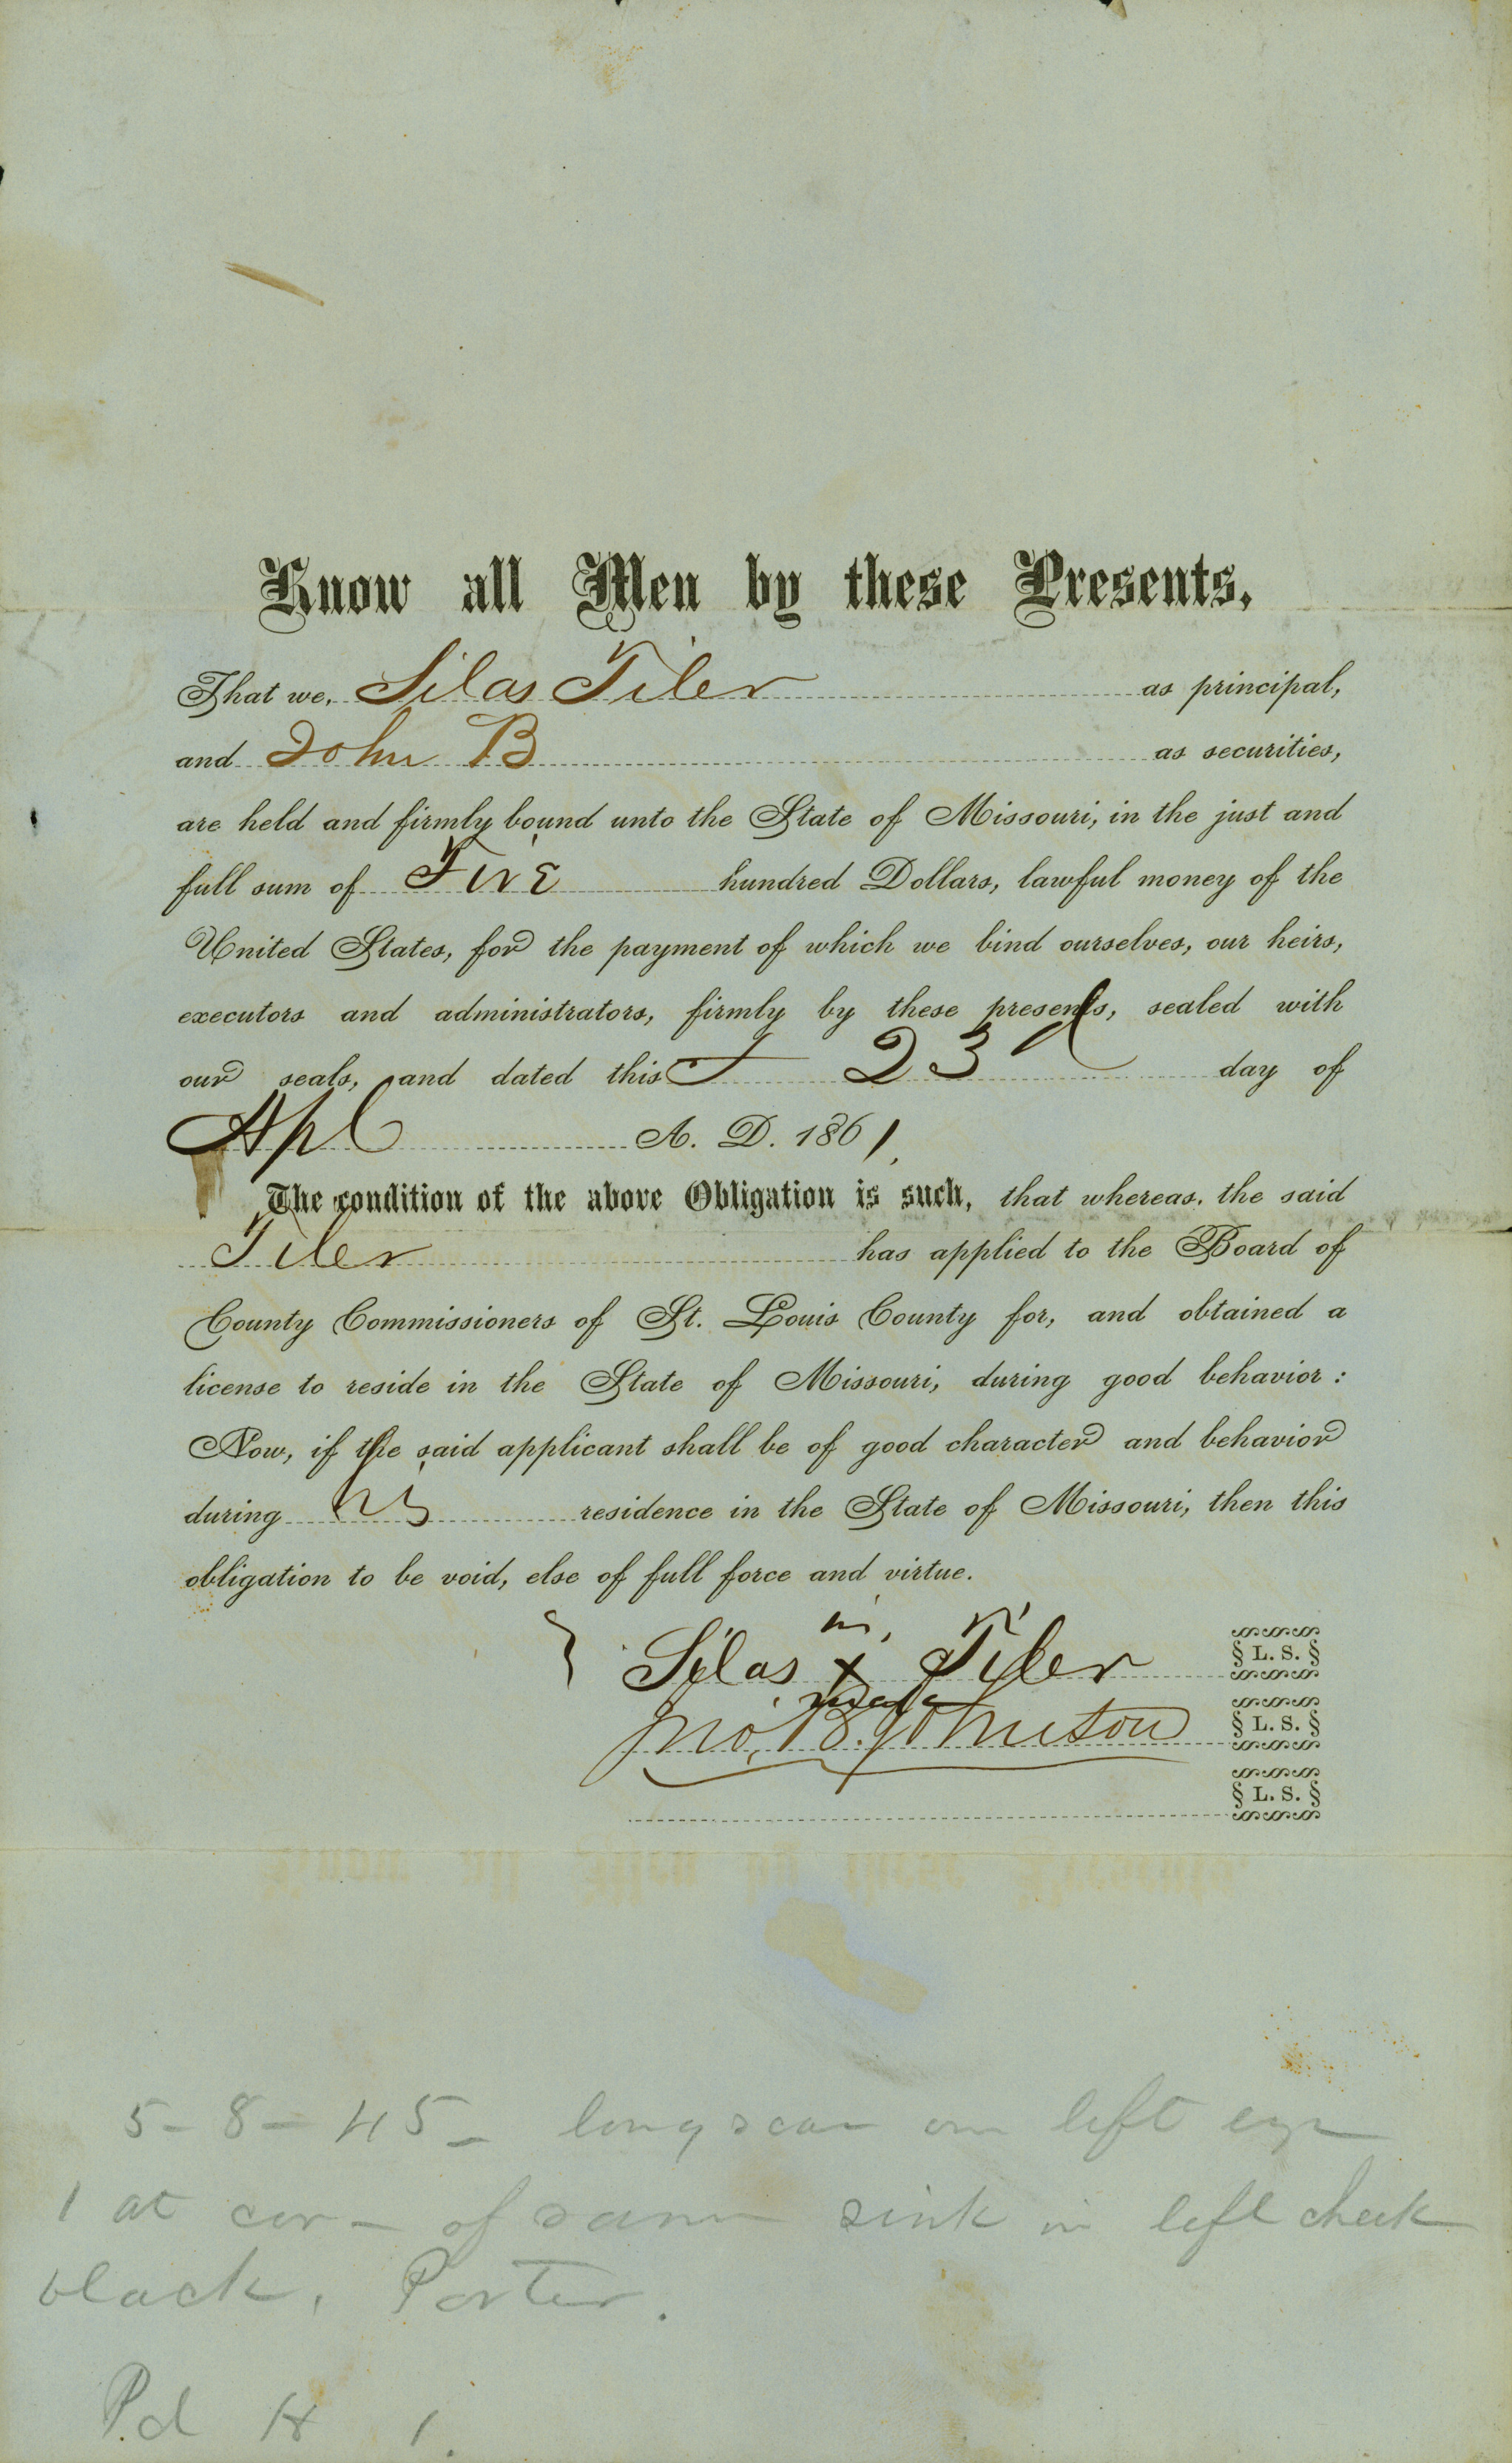 Know all Men by these Presents,
That we, Silas Tiler as principal,
and John B as securities,
are held and firmly bound unto the State of Missouri, in the just and
full sum of Five hundred Dollars, lawful money of the
United States, for the payment of which we bind ourselves, our heirs,
executors and administrators, firmly by these presents, sealed with
our seals, and dated this 23d day of
Apl A. D. 1861,
The condition of the above Obligation is such, that whereas, the said
Tiler has applied to the Board of
County Commissioners of St. Louis County for, and obtained a
license to reside in the State of Missouri, during good behavior:
Now, if the said applicant shall be of good character and behavior
during his residence in the State of Missouri, then this
obligation to be void, else of full force and virtue.
Silas X Tiler L. S.
mark
Jno. B. Johnston L. S.
L. S.
5-8-45- long scar on left eye
1 at cor- of same sink in left cheek
black, Porter.
Pd H 1